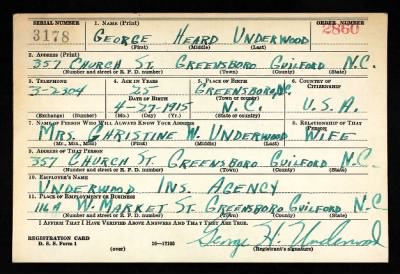 SERIAL NUMBER 1. NAME (Print) ORDER NUMBER
3178 GEORGE HEARD UNDERWOOD 2860
(First) (Middle) (Last)
2. ADDRESS (Print)
357 CHURCH ST. GREENSBORO GUILFORD N.C.
(Number and street or R. F. D. number) (Town) (County) (State)
3. TELEPHONE 4. AGE IN YEARS 5. PLACE OF BIRTH 6. COUNTRY OF CITIZENSHIP
3-2304 25 GREENSBORO, NC
DATE OF BIRTH (Town or county)
4-27-1915 N.C. U.S.A.
(Exchange) (Number) (Mo.) (Day) (Yr.) (State or country)
7. NAME OF PERSON WHO WILL ALWAYS KNOW YOUR ADDRESS 8. RELATIONSHIP OF THAT PERSON
MRS. CHRISTINE W. UNDERWOOD WIFE
(Mr., Mrs., Miss) (First) (Middle) (Last)
9. ADDRESS OF THAT PERSON
357 CHURCH ST. GREENSBORO GUILFORD N.C.
(Number and street or R. F. D. number) (Town) (County) (State)
10. EMPLOYER'S NAME
UNDERWOOD INS. AGENCY
11. PLACE OF EMPLOYMENT OR BUSINESS
116A W. MARKET ST. GREENSBORO GUILFORD N.C
(Number and street or R. F. D. number) (Town) (County) (State)
I AFFIRM THAT I HAVE VERIFIED ABOVE ANSWERS AND THAT THEY ARE TRUE.
REGISTRATION CARD George H. Underwood
D. S. S. Form 1 (over) 16-17105 (Registrant's signature)